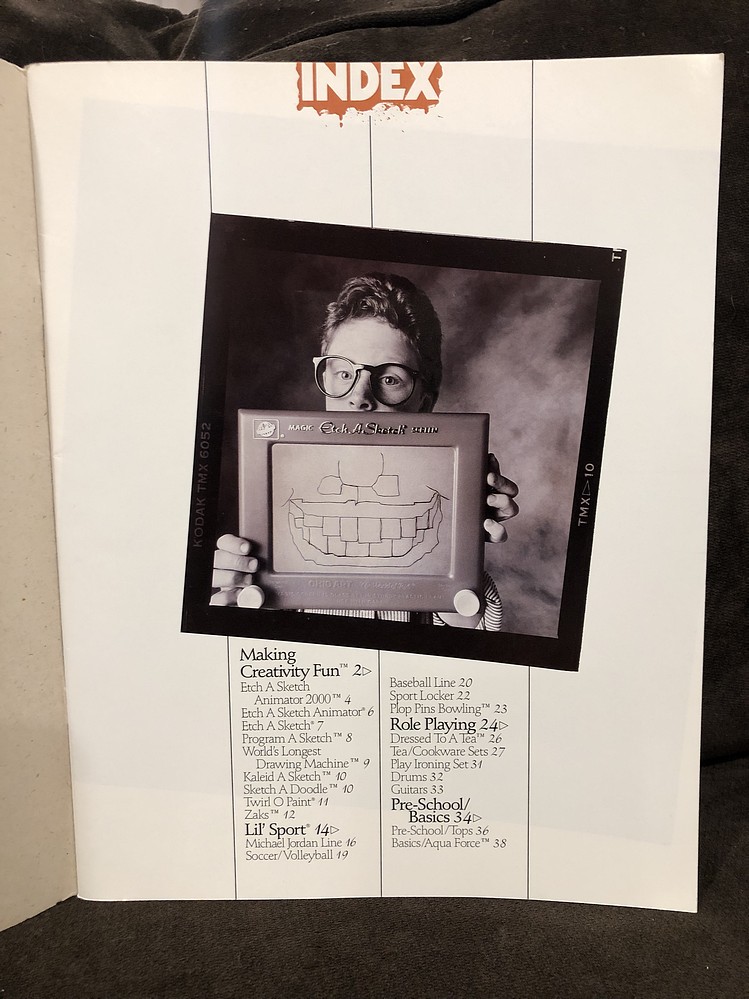 INDEX
TMX▷10
KODAK TMX 6052
MAGIC Etch A Sketch SCREEN
OHIO ART
Making
Creativity Fun™ 2▷
Etch A Sketch
Animator 2000™ 4
Etch A Sketch Animator® 6
Etch A Sketch® 7
Program A Sketch™ 8
World's Longest
Drawing Machine™ 9
Kaleid A Sketch™ 10
Sketch A Doodle™ 10
Twirl O Paint® 11
Zaks™ 12
Lil' Sport® 14▷
Michael Jordan Line 16
Soccer/Volleyball 19
Baseball Line 20
Sport Locker 22
Plop Pins Bowling™ 23
Role Playing 24▷
Dressed To A Tea™ 26
Tea/Cookware Sets 27
Play Ironing Set 31
Drums 32
Guitars 33
Pre-School/
Basics 34▷
Pre-School/Tops 36
Basics/Aqua Force™ 38